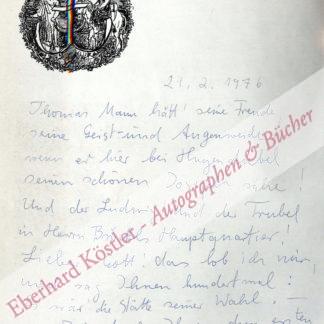 21. 2. 1976
Thomas Mann hätt' seine Freude
seine Geist- und Augenweide
wenn er hier bei Hugendubel
seinen schönen sähe!
Und der Ludwig und der Trubel
in Herrn Hauptquartier!
Lieber Gott! das lob ich mir,
und sag Ihnen hundertmal:
wär die Stätte seiner Wahl. –
Eberhard Köstler - Autographen & Bücher